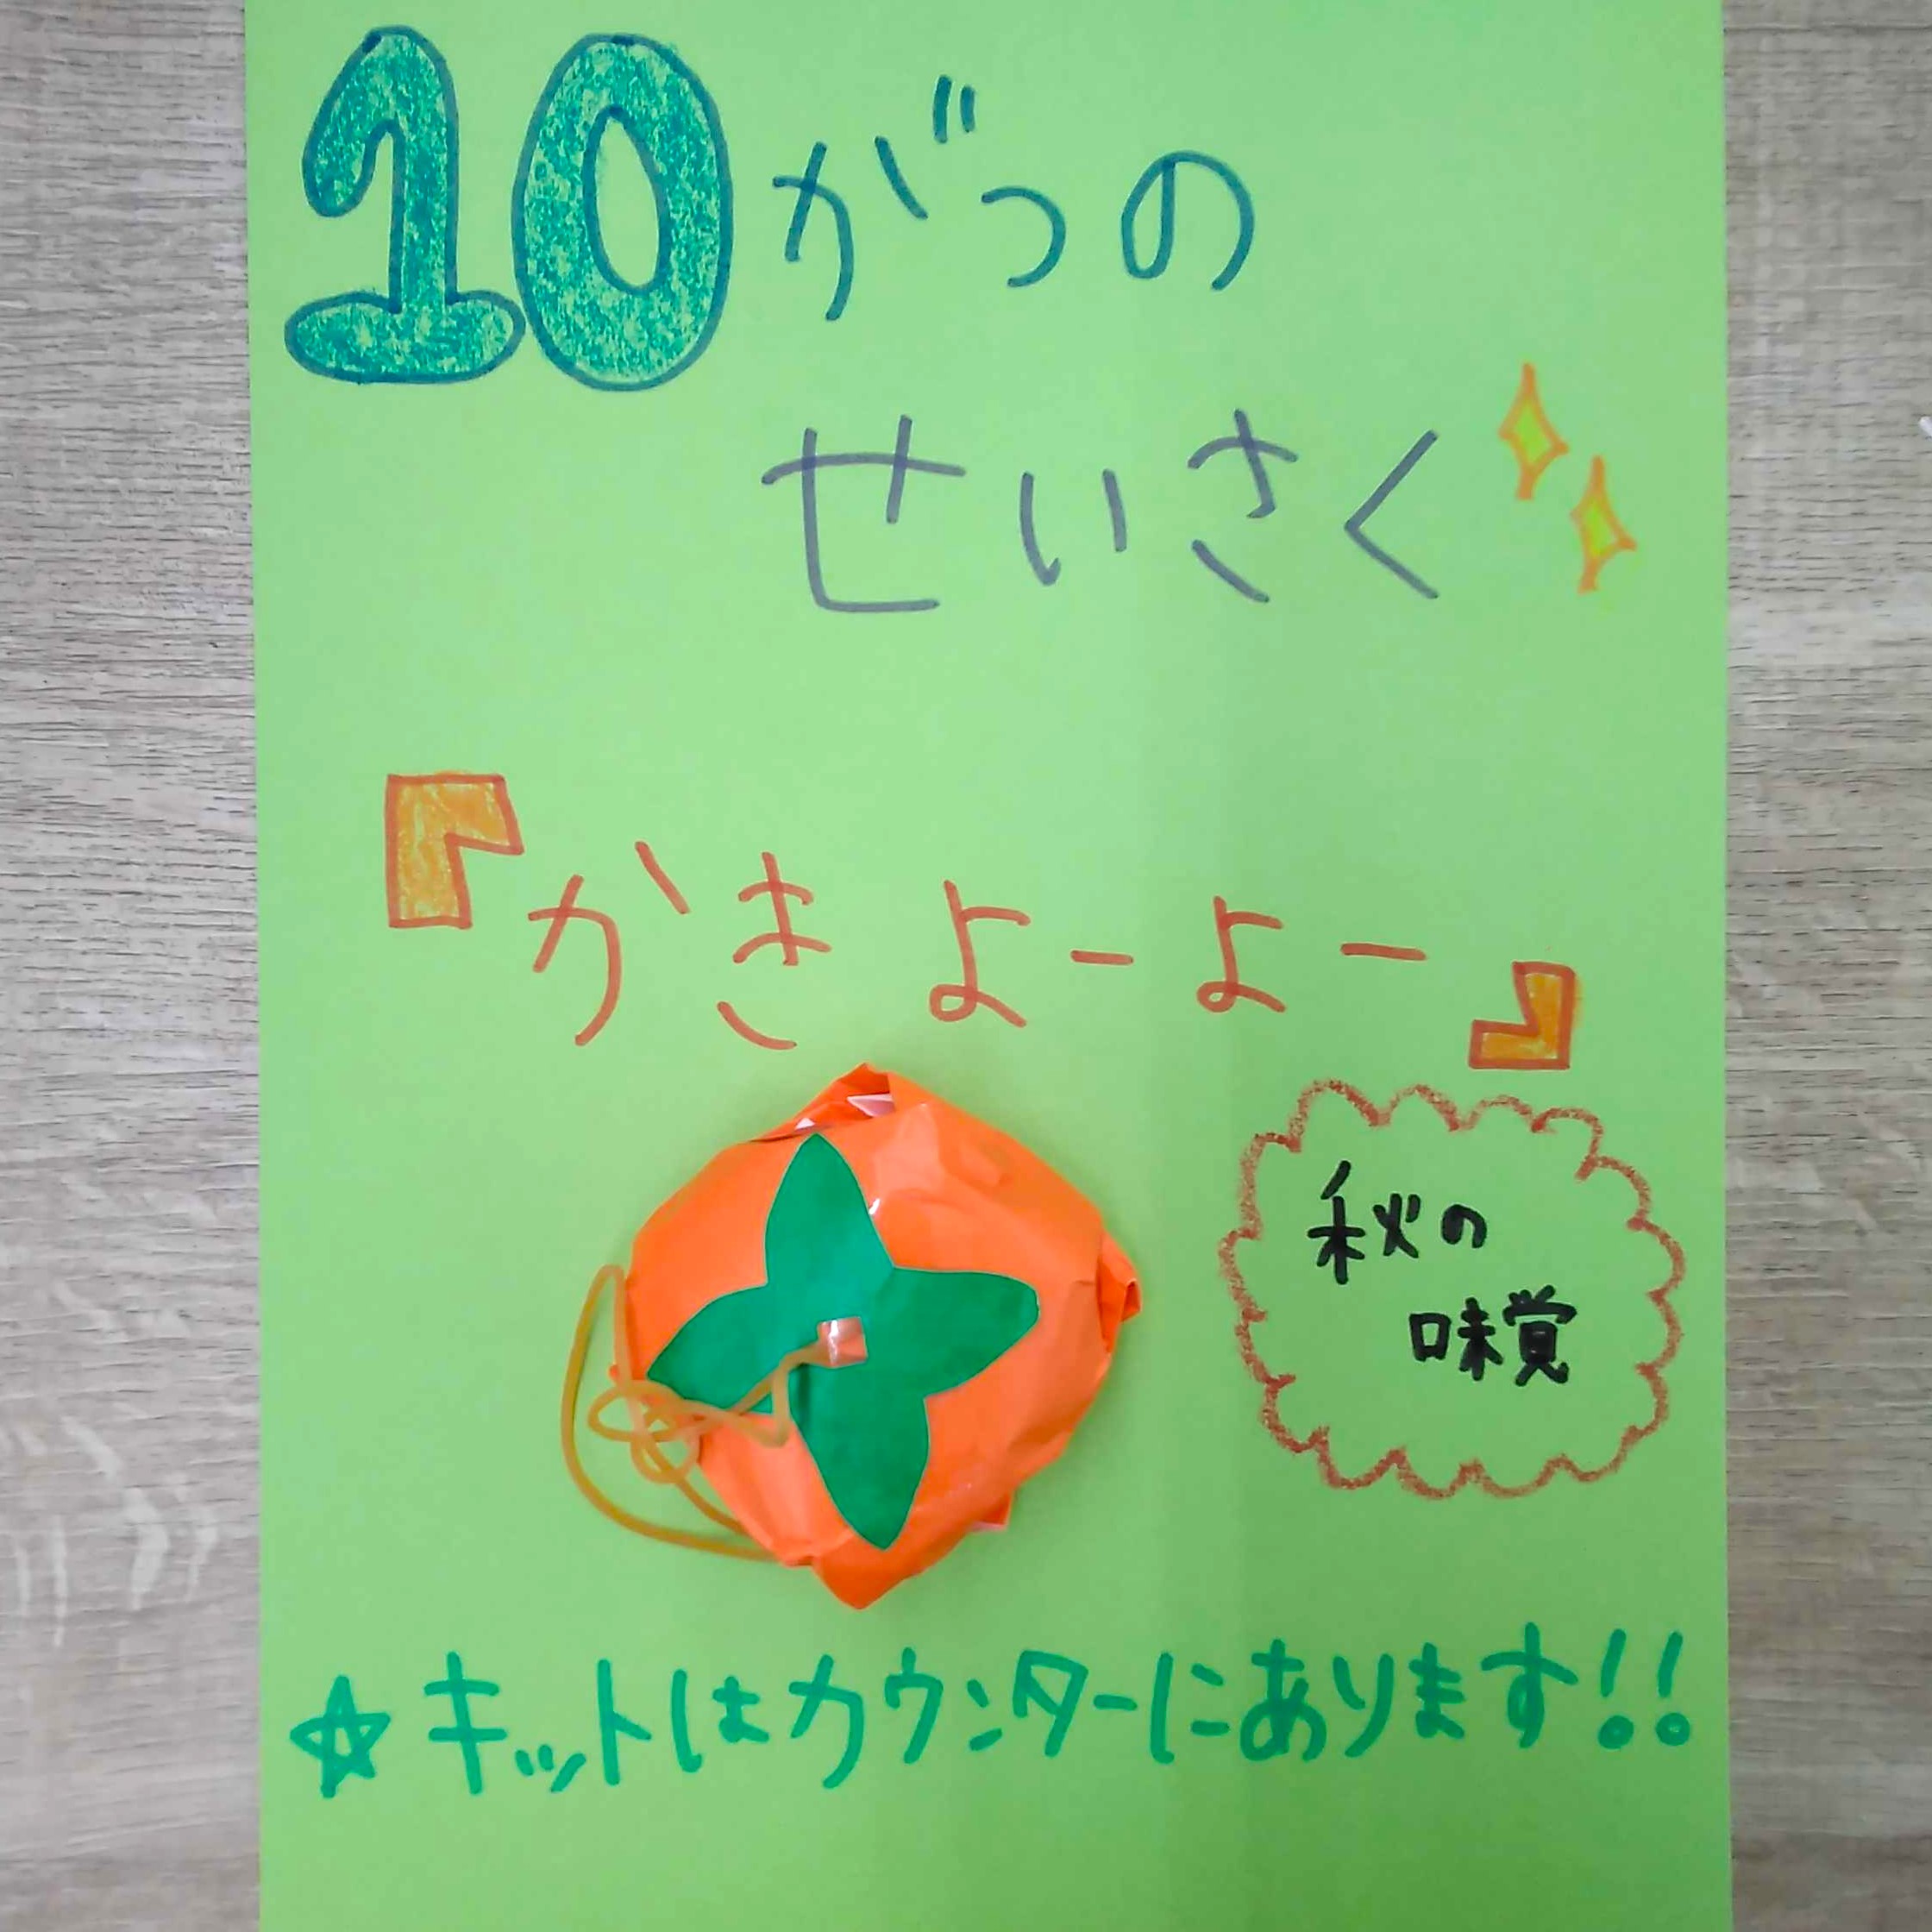 10がつの
せいさく
『かきよーよー』
秋の
味覚
☆キットはカウンターにあります!!